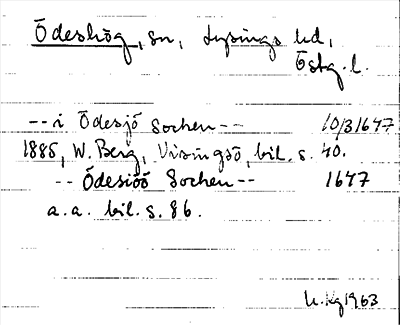 Ödeshög, sn, Lysings hd,
Östg. l.
-- i Ödesjö Sochen -- 10/3 1647
1885, W. Berg, Visingsö, bil. s. 40.
-- Ödesiöö Sochen -- 1647
a. a. bil. s. 86.
1963